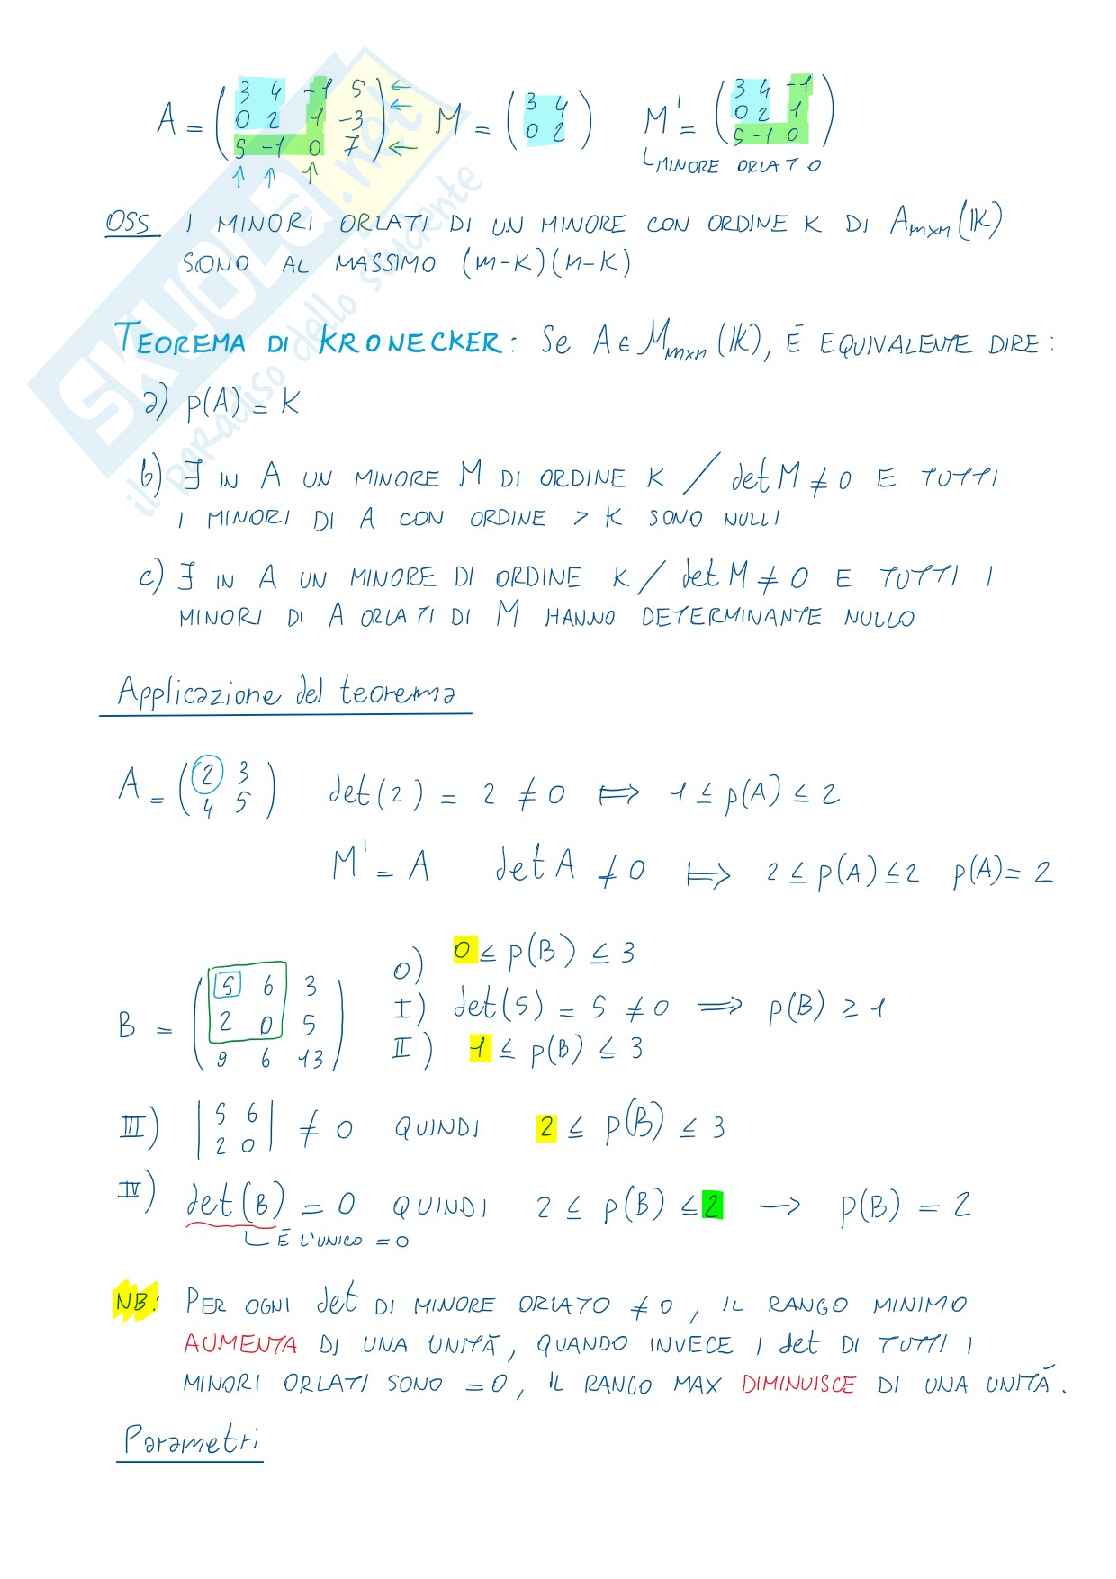 A = ( 3 4 -1 5 ) ← M = ( 3 4 ) M' = ( 3 4 -1 )
( 0 2 1 -3 ) ← ( 0 2 ) ( 0 2 1 )
( 5 -1 0 7 ) ← ( 5 -1 0 )
↑ ↑ ↑ └ MINORE ORLATO
OSS I MINORI ORLATI DI UN MINORE CON ORDINE K DI Amxn(IK)
SONO AL MASSIMO (m-K)(n-K)
TEOREMA DI KRONECKER: Se A ∈ Mmxn(IK), È EQUIVALENTE DIRE:
a) p(A) = K
b) ∃ IN A UN MINORE M DI ORDINE K / det M ≠ 0 E TUTTI
I MINORI DI A CON ORDINE > K SONO NULLI
c) ∃ IN A UN MINORE DI ORDINE K / det M ≠ 0 E TUTTI I
MINORI DI A ORLATI DI M HANNO DETERMINANTE NULLO
Applicazione del teorema
A = ( 2 3 ) det(2) = 2 ≠ 0 ⟺ 1 ≤ p(A) ≤ 2
( 4 5 )
M' = A det A ≠ 0 ⟹ 2 ≤ p(A) ≤ 2 p(A) = 2
0) 0 ≤ p(B) ≤ 3
B = ( 5 6 3 ) I) det(5) = 5 ≠ 0 ⟹ p(B) ≥ 1
( 2 0 5 ) II) 1 ≤ p(B) ≤ 3
( 9 6 13 )
III) | 5 6 | ≠ 0 QUINDI 2 ≤ p(B) ≤ 3
| 2 0 |
IV) det(B) = 0 QUINDI 2 ≤ p(B) ≤ 2 → p(B) = 2
└ È L'UNICO = 0
NB: PER OGNI det DI MINORE ORLATO ≠ 0, IL RANGO MINIMO
AUMENTA DI UNA UNITÀ, QUANDO INVECE I det DI TUTTI I
MINORI ORLATI SONO = 0, IL RANGO MAX DIMINUISCE DI UNA UNITÀ.
Parametri
SKUOLA.net
il paradiso dello studente